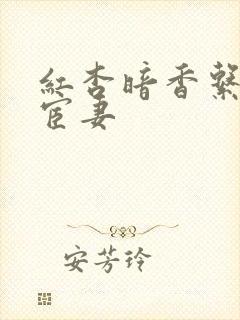 紅杏暗香繫
宦妻
安芳玲